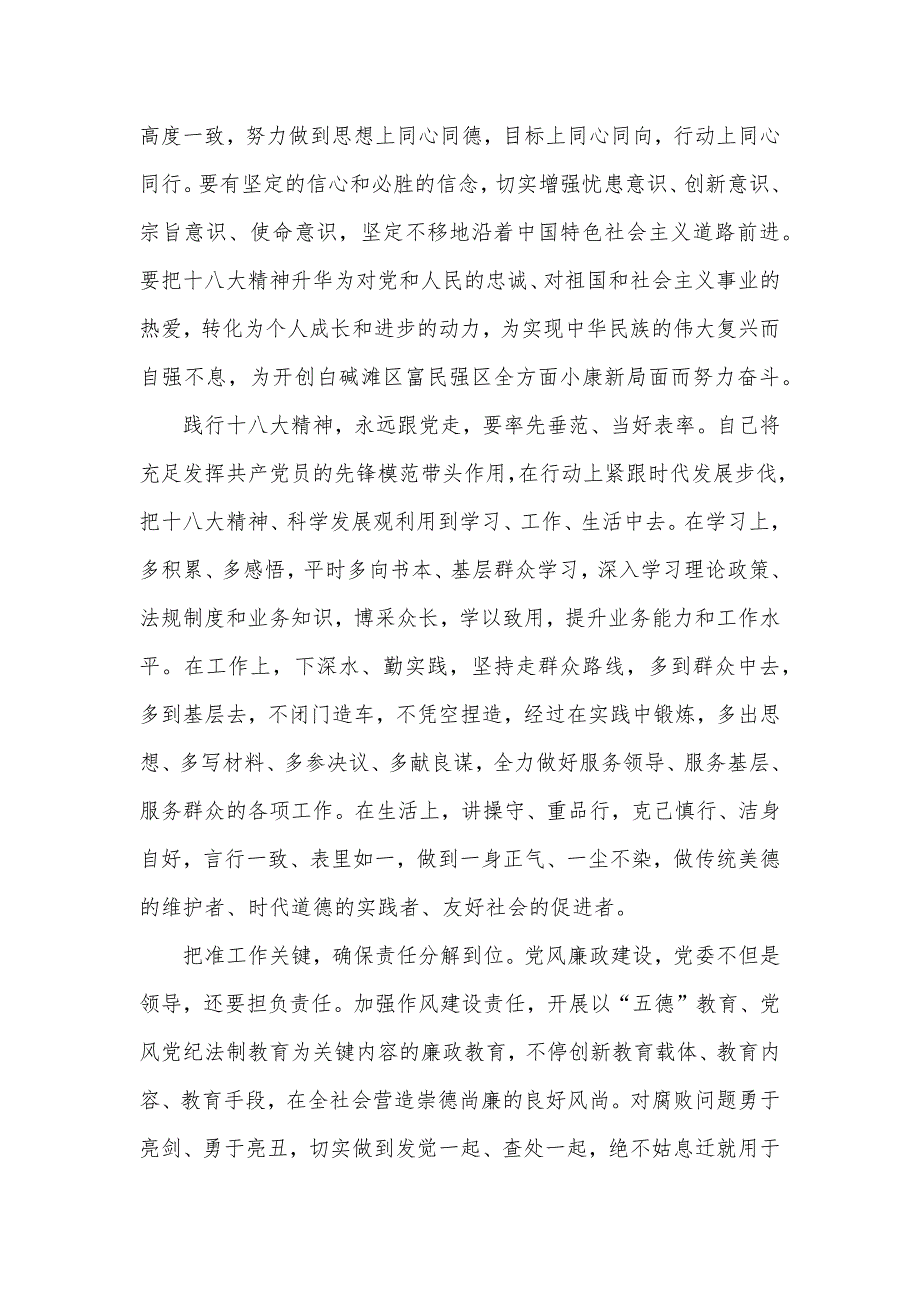 高度一致，努力做到思想上同心同德，目标上同心同向，行动上同心
同行。要有坚定的信心和必胜的信念，切实增强忧患意识、创新意识、
宗旨意识、使命意识，坚定不移地沿着中国特色社会主义道路前进。
要把十八大精神升华为对党和人民的忠诚、对祖国和社会主义事业的
热爱，转化为个人成长和进步的动力，为实现中华民族的伟大复兴而
自强不息，为开创白碱滩区富民强区全方面小康新局面而努力奋斗。
践行十八大精神，永远跟党走，要率先垂范、当好表率。自己将
充足发挥共产党员的先锋模范带头作用，在行动上紧跟时代发展步伐，
把十八大精神、科学发展观利用到学习、工作、生活中去。在学习上，
多积累、多感悟，平时多向书本、基层群众学习，深入学习理论政策、
法规制度和业务知识，博采众长，学以致用，提升业务能力和工作水
平。在工作上，下深水、勤实践，坚持走群众路线，多到群众中去，
多到基层去，不闭门造车，不凭空捏造，经过在实践中锻炼，多出思
想、多写材料、多参决议、多献良谋，全力做好服务领导、服务基层、
服务群众的各项工作。在生活上，讲操守、重品行，克己慎行、洁身
自好，言行一致、表里如一，做到一身正气、一尘不染，做传统美德
的维护者、时代道德的实践者、友好社会的促进者。
把准工作关键，确保责任分解到位。党风廉政建设，党委不但是
领导，还要担负责任。加强作风建设责任，开展以“五德”教育、党
风党纪法制教育为关键内容的廉政教育，不停创新教育载体、教育内
容、教育手段，在全社会营造崇德尚廉的良好风尚。对腐败问题勇于
亮剑、勇于亮丑，切实做到发觉一起、查处一起，绝不姑息迁就用于